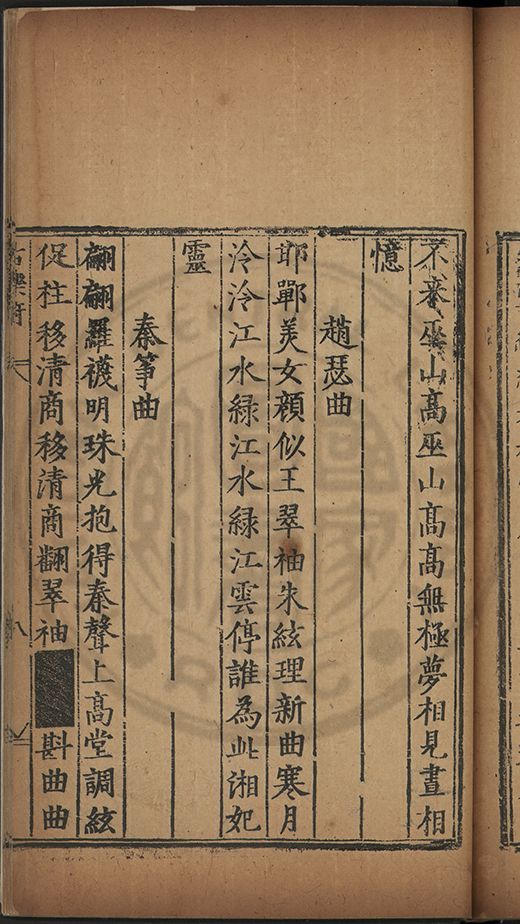 不来巫山高巫山高高無極夢相見晝相
憶
趙瑟曲
邯鄲美女顔似王翠袖朱絃理新曲寒月
泠泠江水緑江水緑江雲停誰為此湘妃
靈
秦筝曲
翩翩羅襪明珠光抱得秦聲上高堂調絃
促柱移清商移清商翻翠袖斟曲曲
古樂府
八